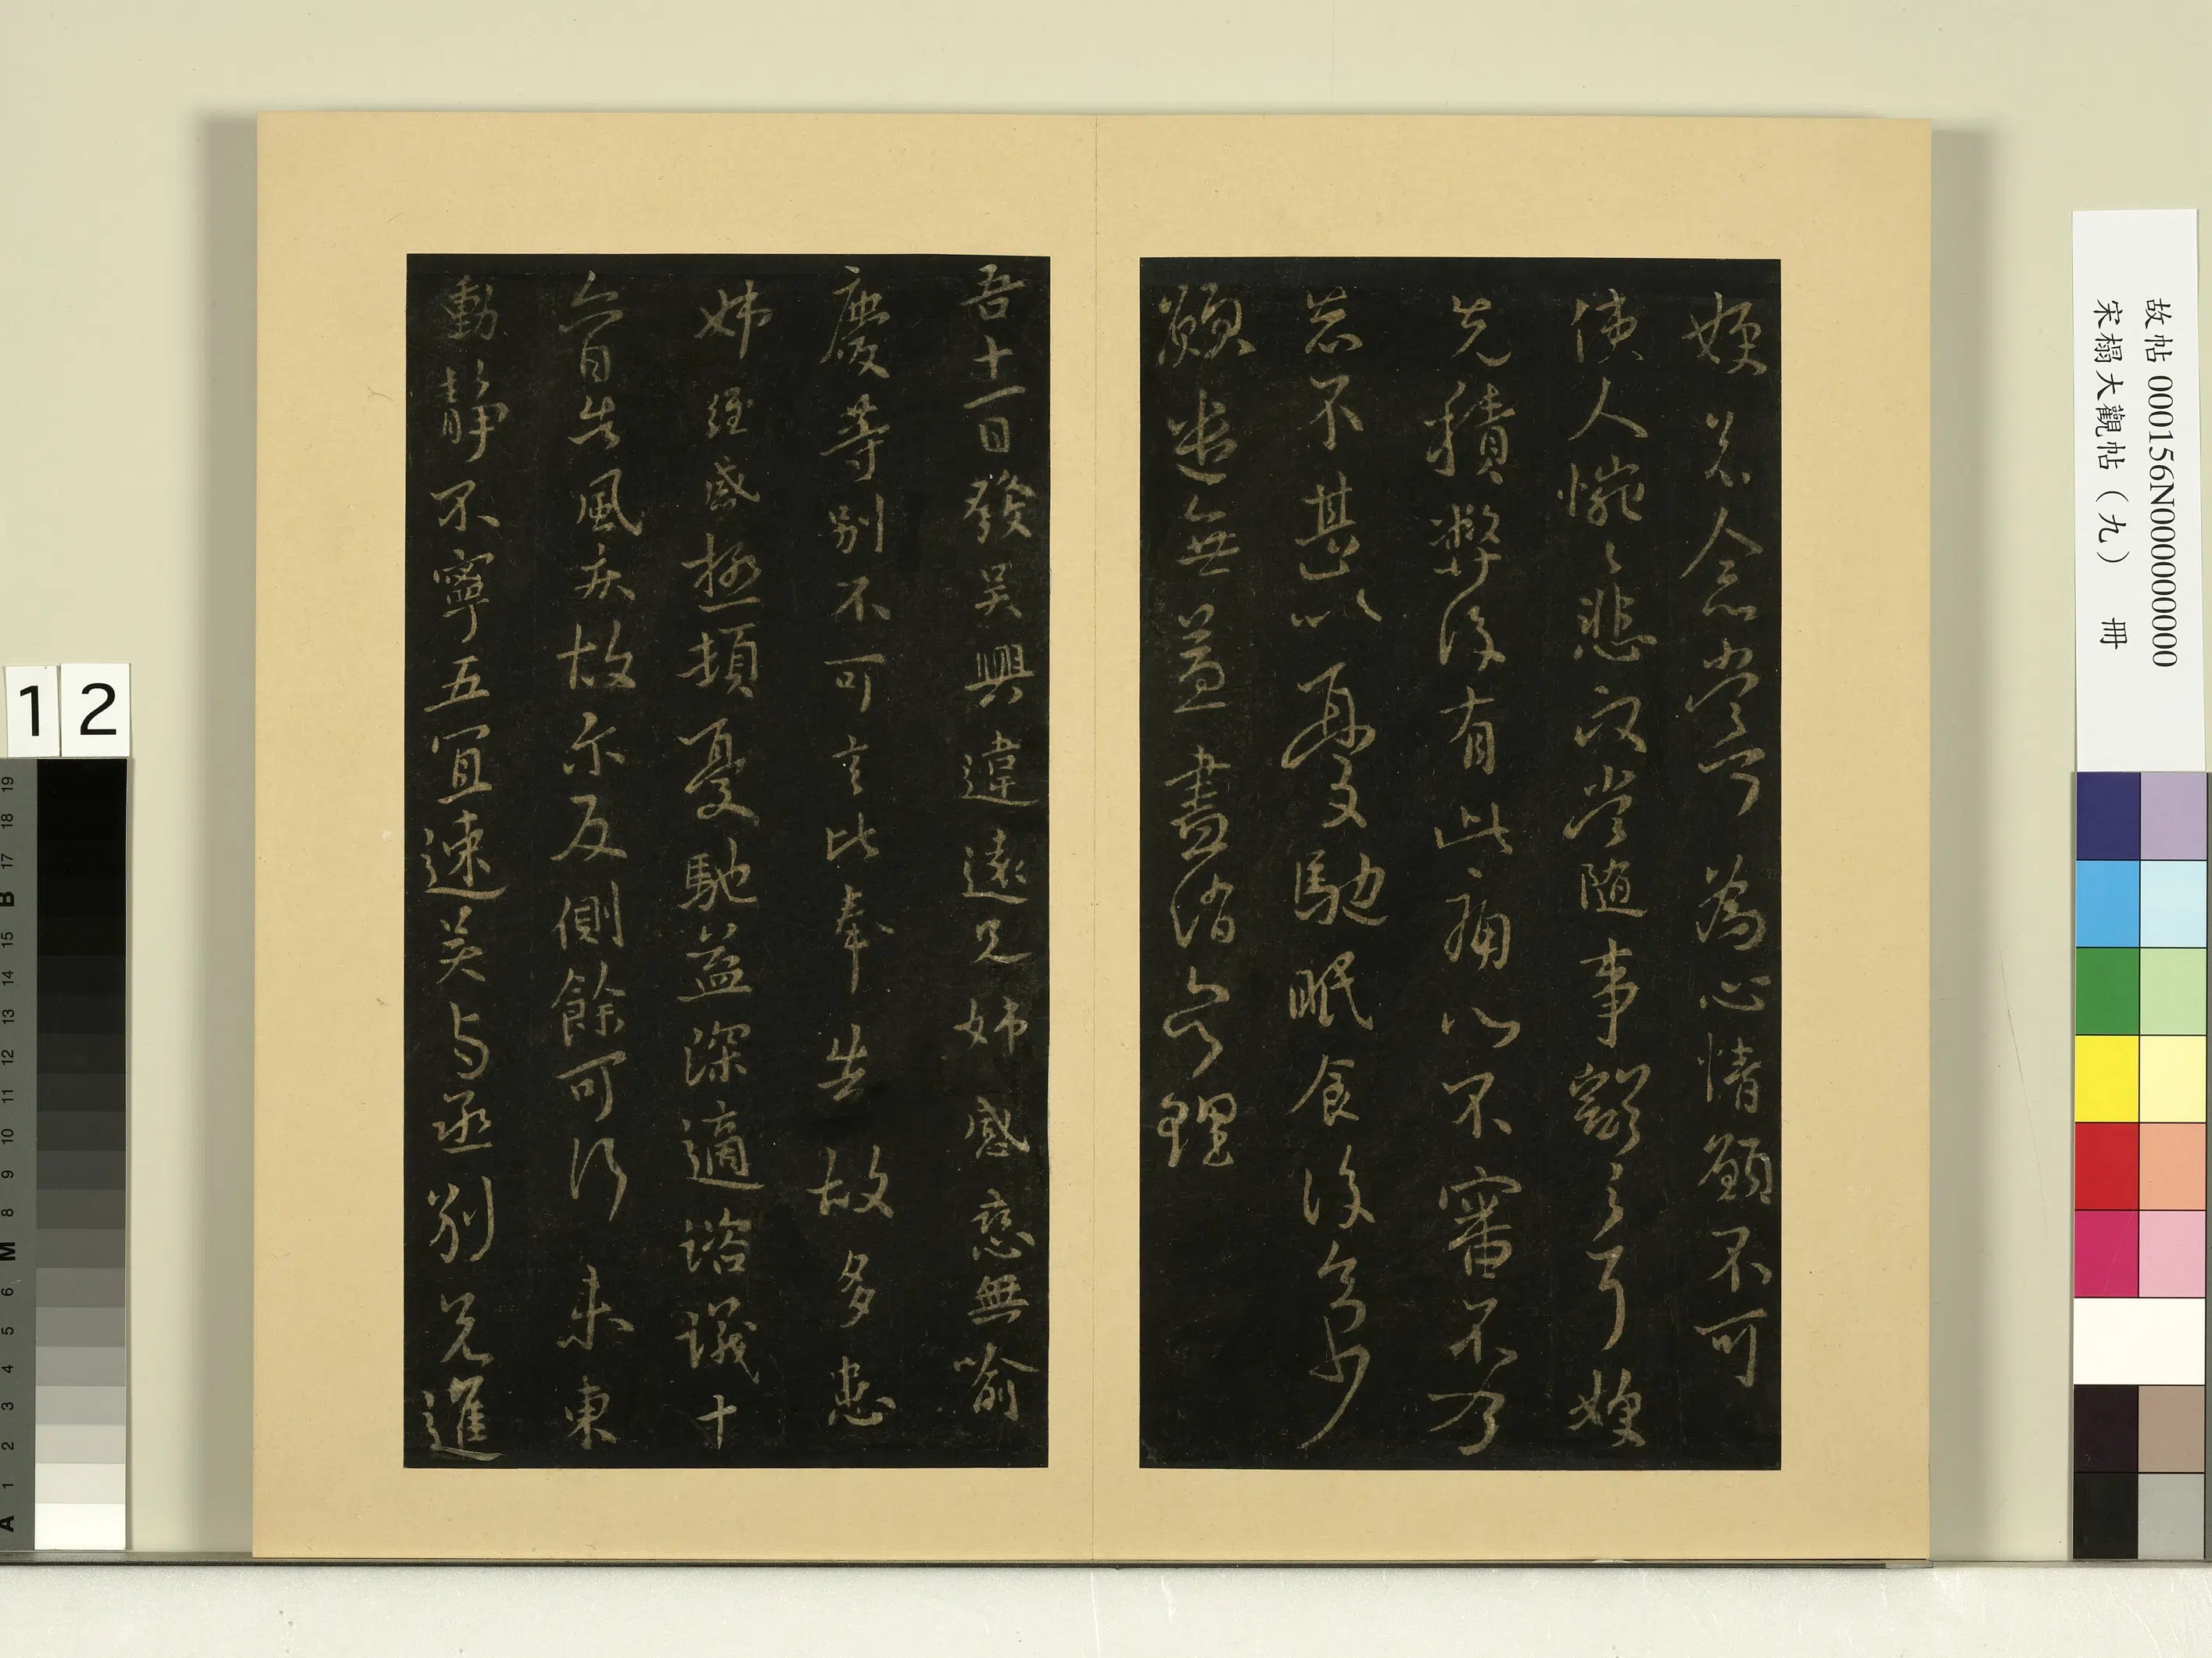 嫂等念當何為心情願不可
使人惋惋悲又當隨事豁之耳嫂
先積弊復有此痛心不審不乃
惡不甚以憂馳眠食復多少
願遣無益盡消息理
吾十一日發吳興違遠兄姊感戀無喻
慶等別不可言比奉告故多患
姊經感極頓憂馳益深適諮議十
六日告風疾故爾反側餘可行來東
動靜不寧五宜速吳与丞別兄進
故帖000156N000000000
宋榻大觀帖（九） 冊
12